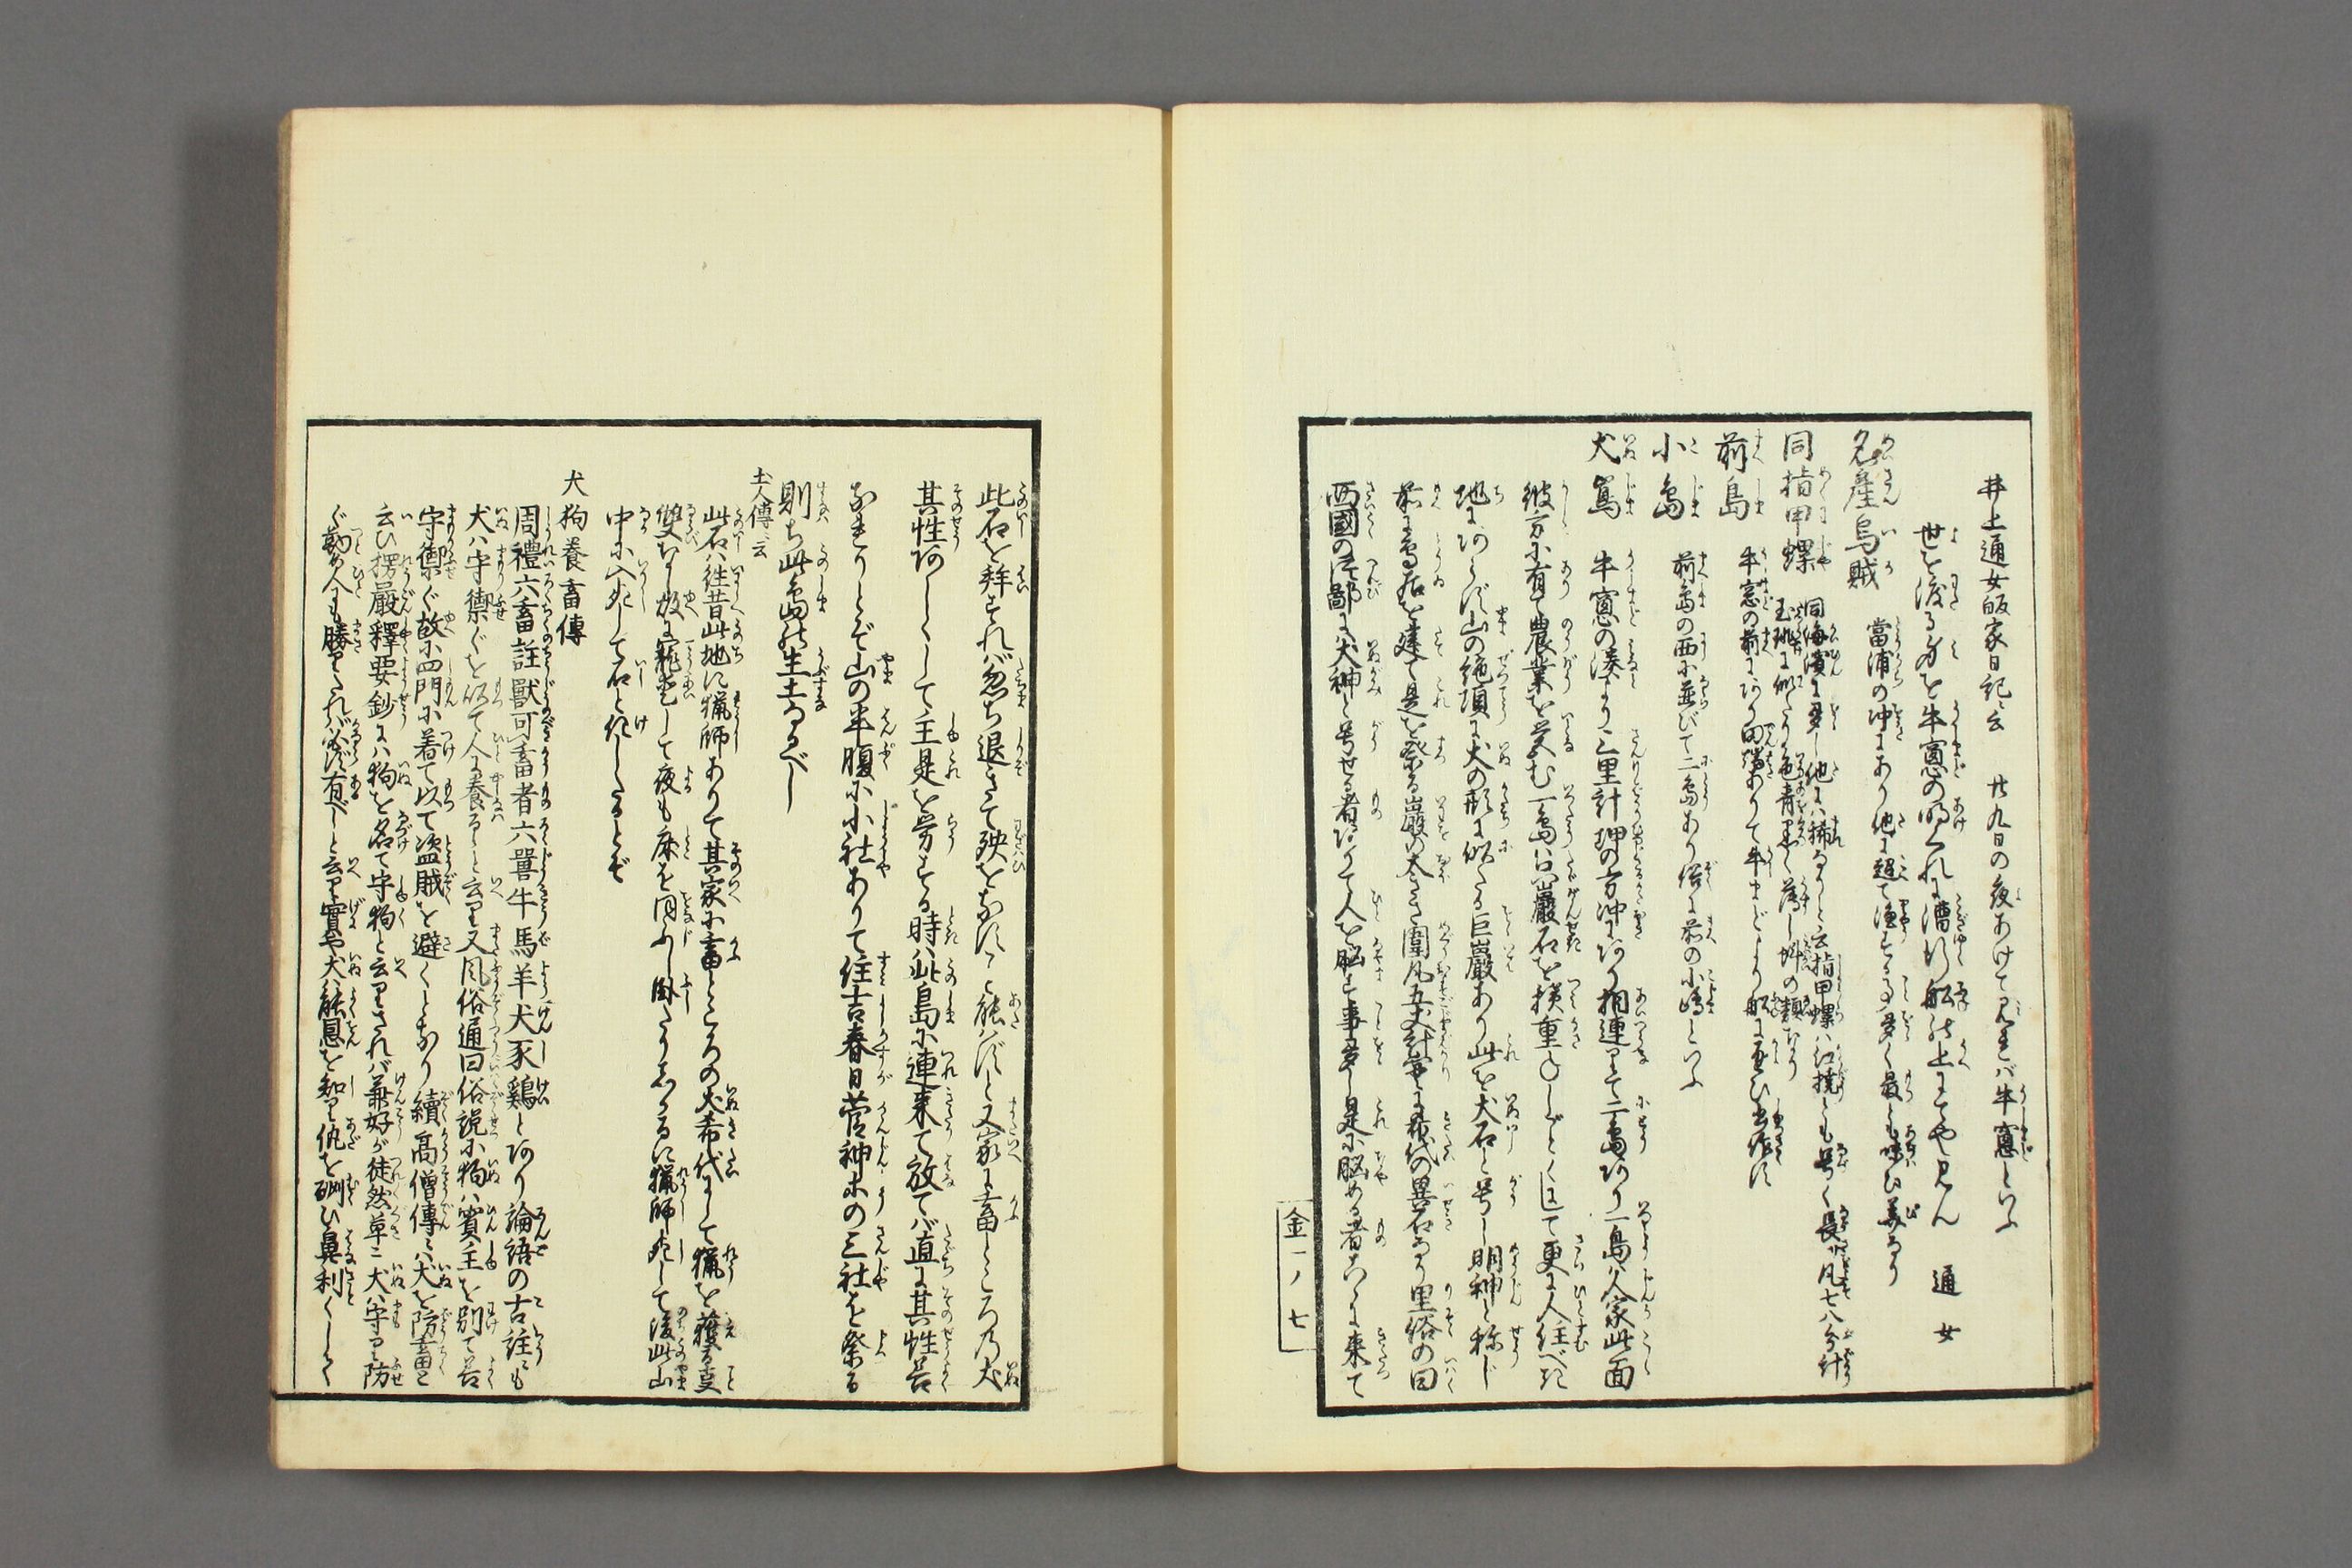 井上通女皈家日記云　廿九日の夜あけて見れバ牛窓といふ
世を渡る身を牛窓の明くれに漕行船の上にてや見ん　通女
名産烏賊　當浦の沖にあり他に超て漁する事多く最も味ひ美なり
同指甲螺　同海濱に多し他にハ稀なりと云指甲螺ハ江橈とも号く長サ凡七八分計
玉珧に似たり色青黒く薄し蚌の類なり
前島　牛窓の前にあり
小島　前島の西に並びて二島あり俗に前の小嶋といふ
犬嶌　牛窓の湊より三里計坤の方沖にあり相連りて二島あり一島ハ人家此面
彼方に有て農業を営む一島ハ巖石を積重
地にあらず山の絶頂に犬の形に似たる巨巖あり此を犬石と号し明神と称じ
前に鳥居を建て是を祭る巖の太さ圍凡五丈計実に希代の異石なり里俗の曰
西國の辺鄙に犬神と号せる者ありて人を脳す事多し是に脳める者こゝに来て
金一ノ七
此石を拜すれバ忽ち退きて殃をなすこと能ハずと又家に畜ところの犬
其性あしくして主是を労する時ハ此島に連来て放てバ直に其性善
なれりとぞ山の半腹に小社ありて住吉春日菅神等の三社を祭る
則ち此島の生土なるべし
土人傳云
此石ハ往昔此地に猟師ありて其家に畜ところの犬希代にして猟を獲る事
雙なし故に寵愛して夜も床を同ふし臥たりしかるに猟師死して後此山
中に入死して石と化したるとぞ
犬狗養畜傳
周禮六畜註獸可畜者六畧牛馬羊犬豕鷄とあり論語の古註にも
犬ハ守禦ぐを以て人に養るゝと云り又風俗通曰俗説に狗ハ賓主を別て善
守禦ぐ故に四門に着て以て盗賊を避くとなり續高僧傳にハ犬を防畜と
云ひ楞嚴釋要鈔にハ狗を名て守狗と云りされバ兼好が徒然草ニ犬ハ守り防
ぐ勤め人にも勝りたれバ必ず有べしと云り實や犬ハ能恩を知り仇を酬ひ鼻利くして